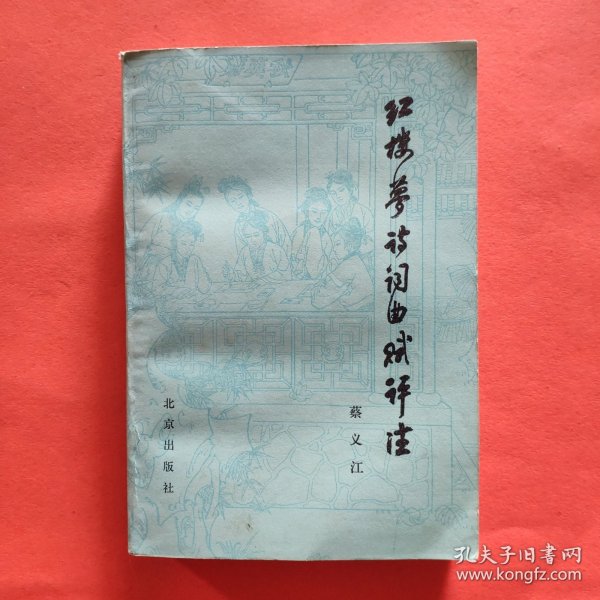 红楼夢诗词曲赋评注
蔡义江
北京出版社
孔夫子旧書网
www.kongfz.com